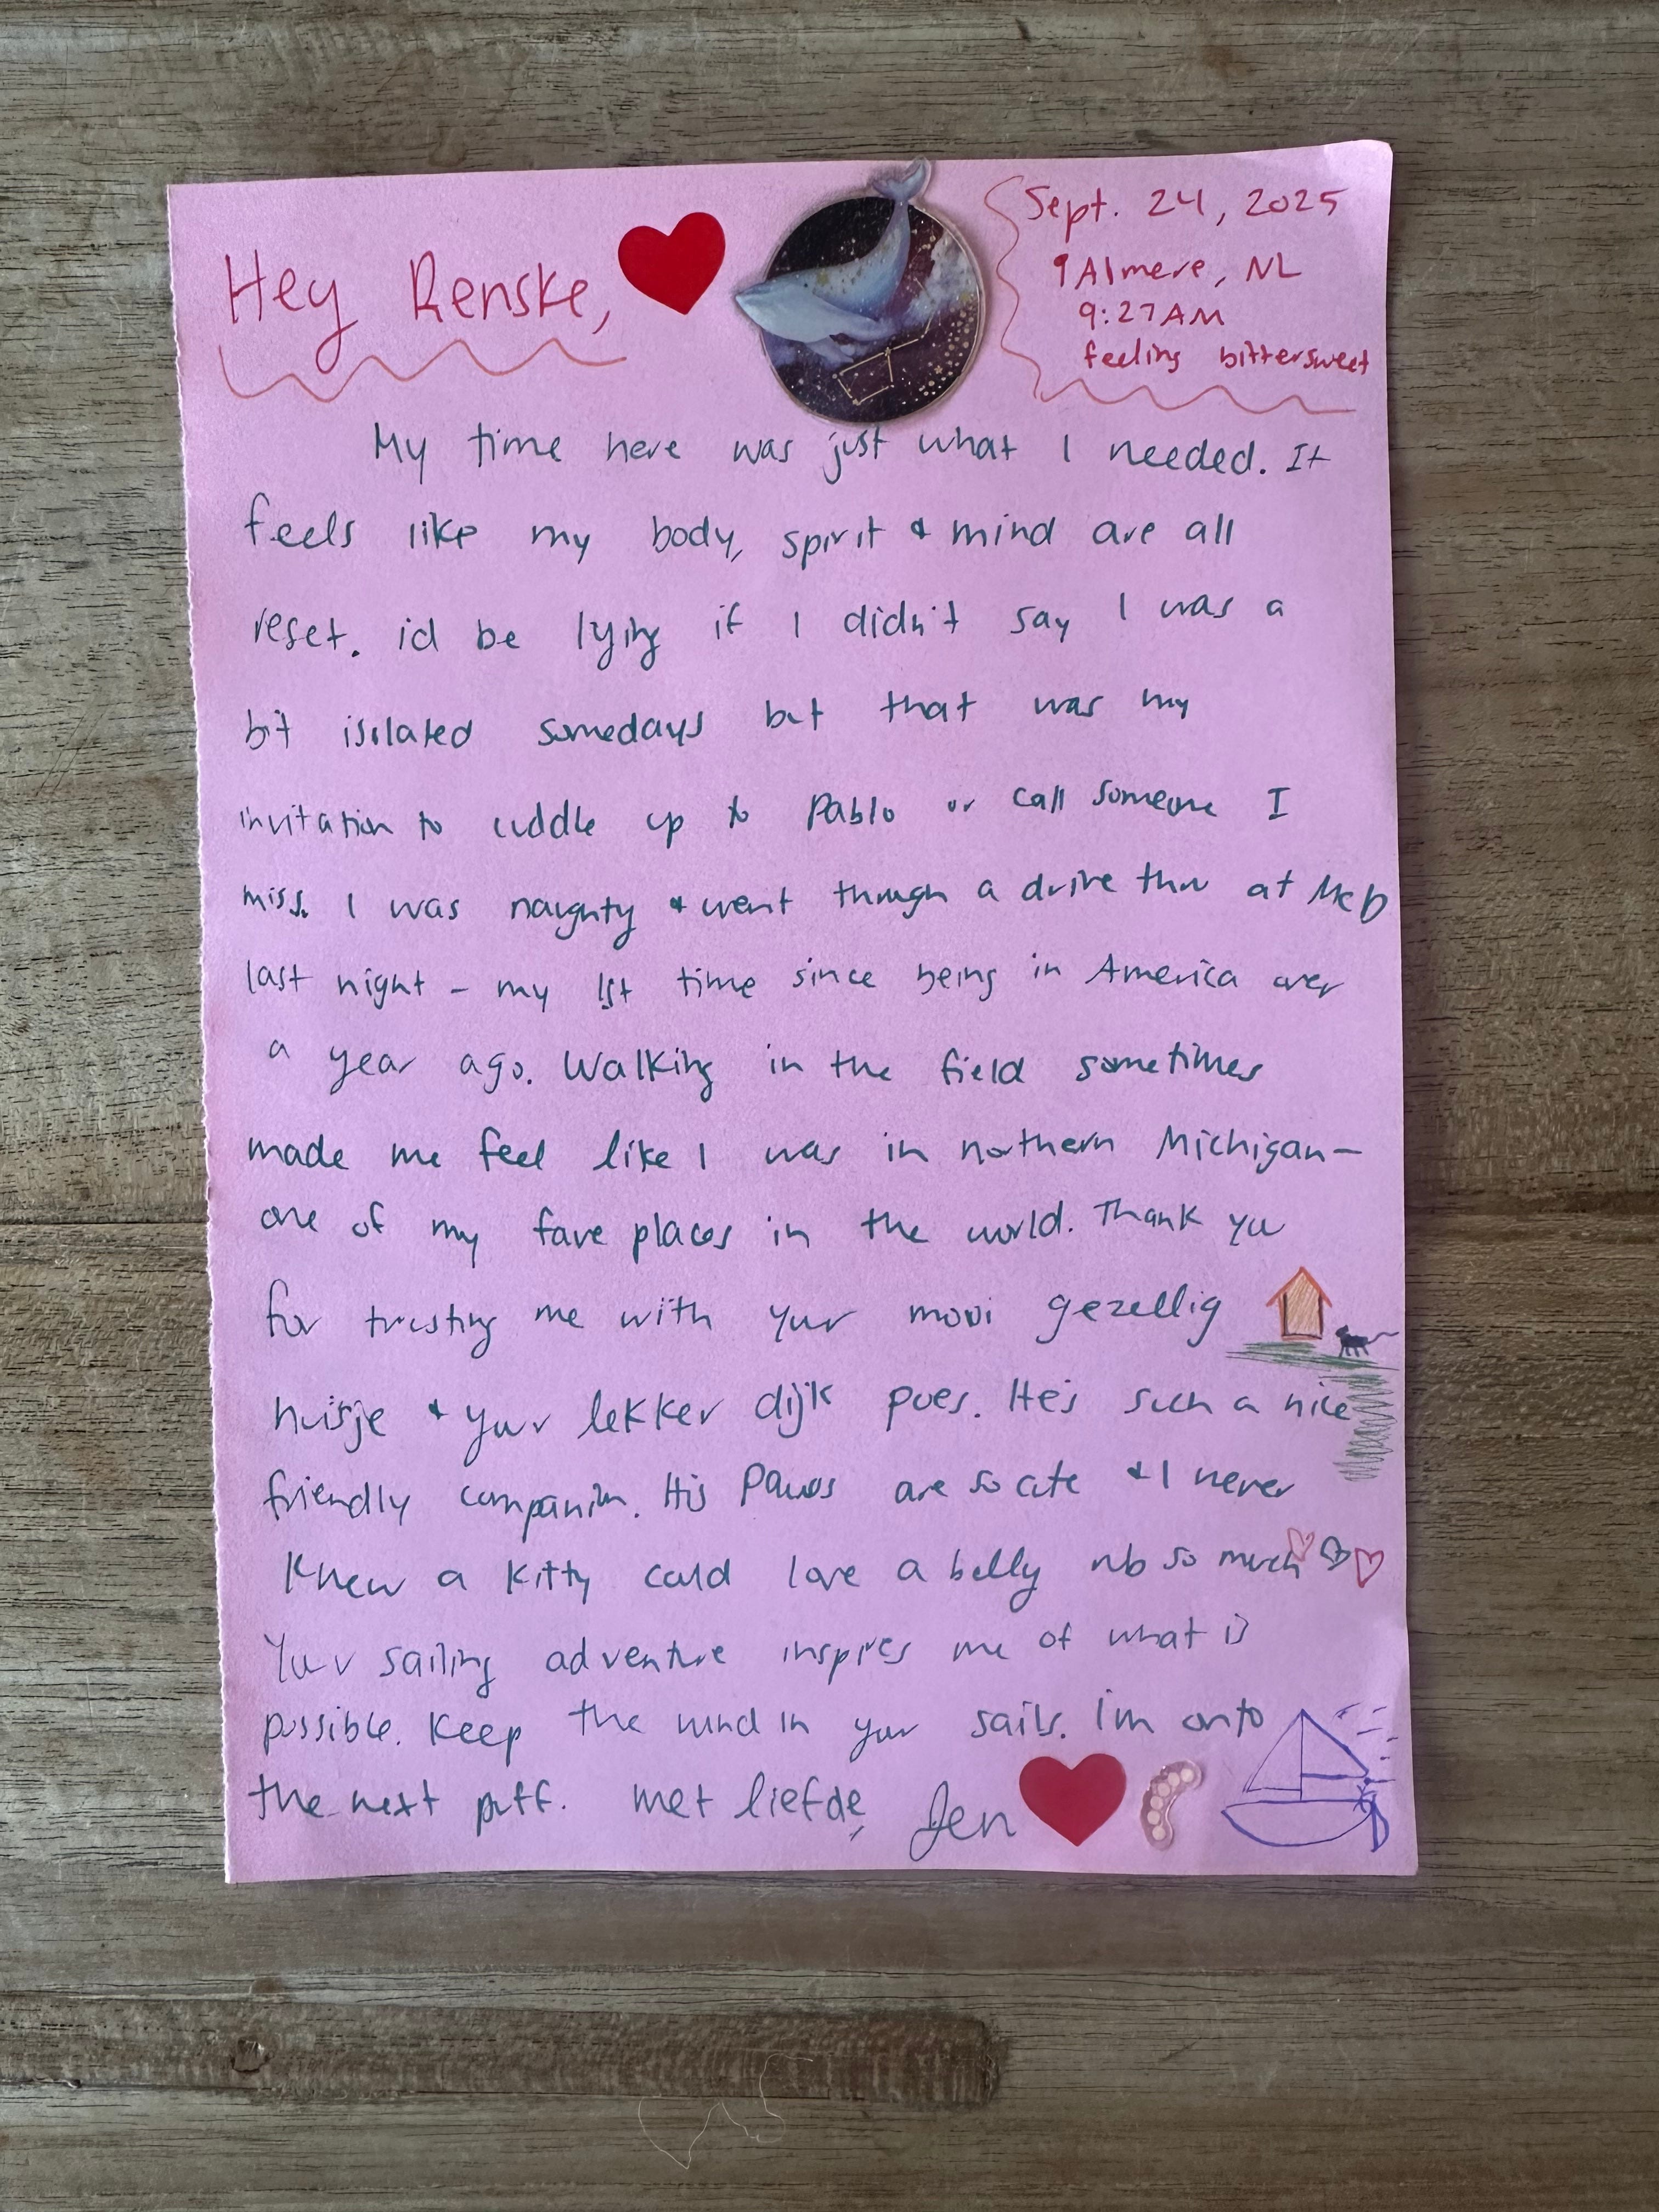 Sept. 24, 2025
Almere, NL
9:27AM
feeling bittersweet
Hey Renske,
My time here was just what I needed. It
feels like my body, spirit & mind are all
reset. id be lying if I didn't say I was a
bit isolated somedays but that was my
invitation to cuddle up to Pablo or call someone I
miss. I was naughty & went through a drive thru at McD
last night - my 1st time since being in America over
a year ago. Walking in the field sometimes
made me feel like I was in northern Michigan-
one of my fave places in the world. Thank you
for trusting me with your mooi gezellig
huisje & your lekker dijk poes. He's such a nice
friendly companion. His Paws are so cute & I never
knew a kitty could love a belly rub so much
Your sailing adventure inspires me of what is
possible. Keep the wind in your sails. I'm onto
the next puff. met liefde, Jen